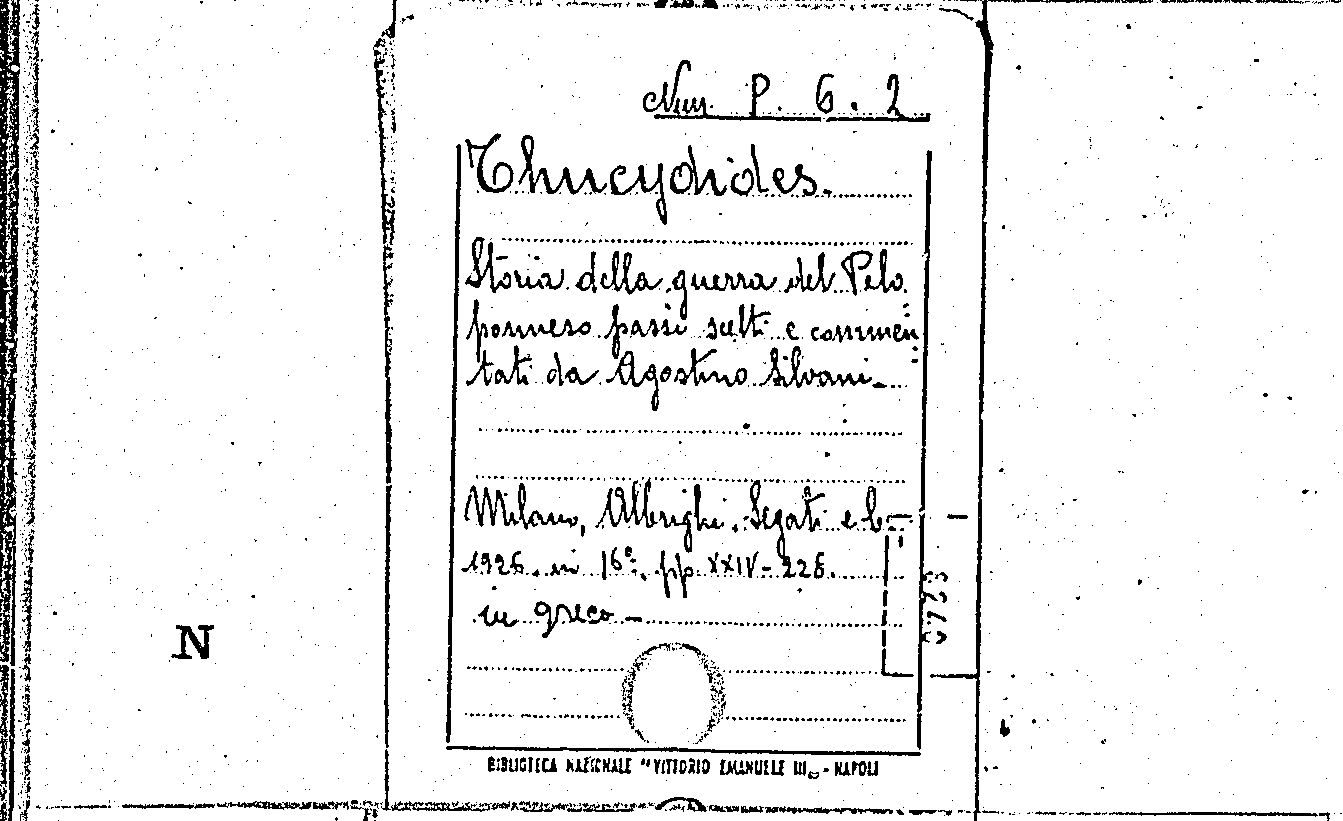 Nun. P. 6. 2
Thucydides.
Storia della guerra del Pelo
ponneso passi scelti e commen
tati da Agostino Silvani.
Milano, Albrighi. Segati e C.
1926. in 16º. pp. XXIV-228.
in greco -
N
BIBLIOTECA NAZIONALE "VITTORIO EMANUELE III„ - NAPOLI